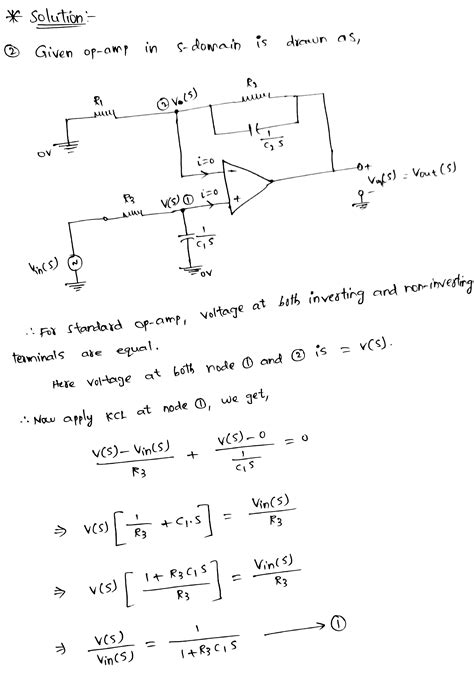 * Solution:-
② Given op-amp in s-domain is drawn as,
R1
② V(S)
R2
1/C2 S
0V
i=0
R3
V(S) ①
i=0
-
+
0+
Vo(S) = Vout(S)
-
1/C1 S
Vin(S)
0V
∴ For standard op-amp, voltage at both inverting and non-inverting
terminals are equal.
Here voltage at both node ① and ② is = V(S).
∴ Now apply KCL at node ①, we get,
(V(S) - Vin(S))/R3 + (V(S) - 0)/(1/C1 S) = 0
⇒ V(S) [1/R3 + C1.S] = Vin(S)/R3
⇒ V(S) [(1 + R3 C1 S)/R3] = Vin(S)/R3
⇒ V(S)/Vin(S) = 1/(1 + R3 C1 S) ⟶ ①